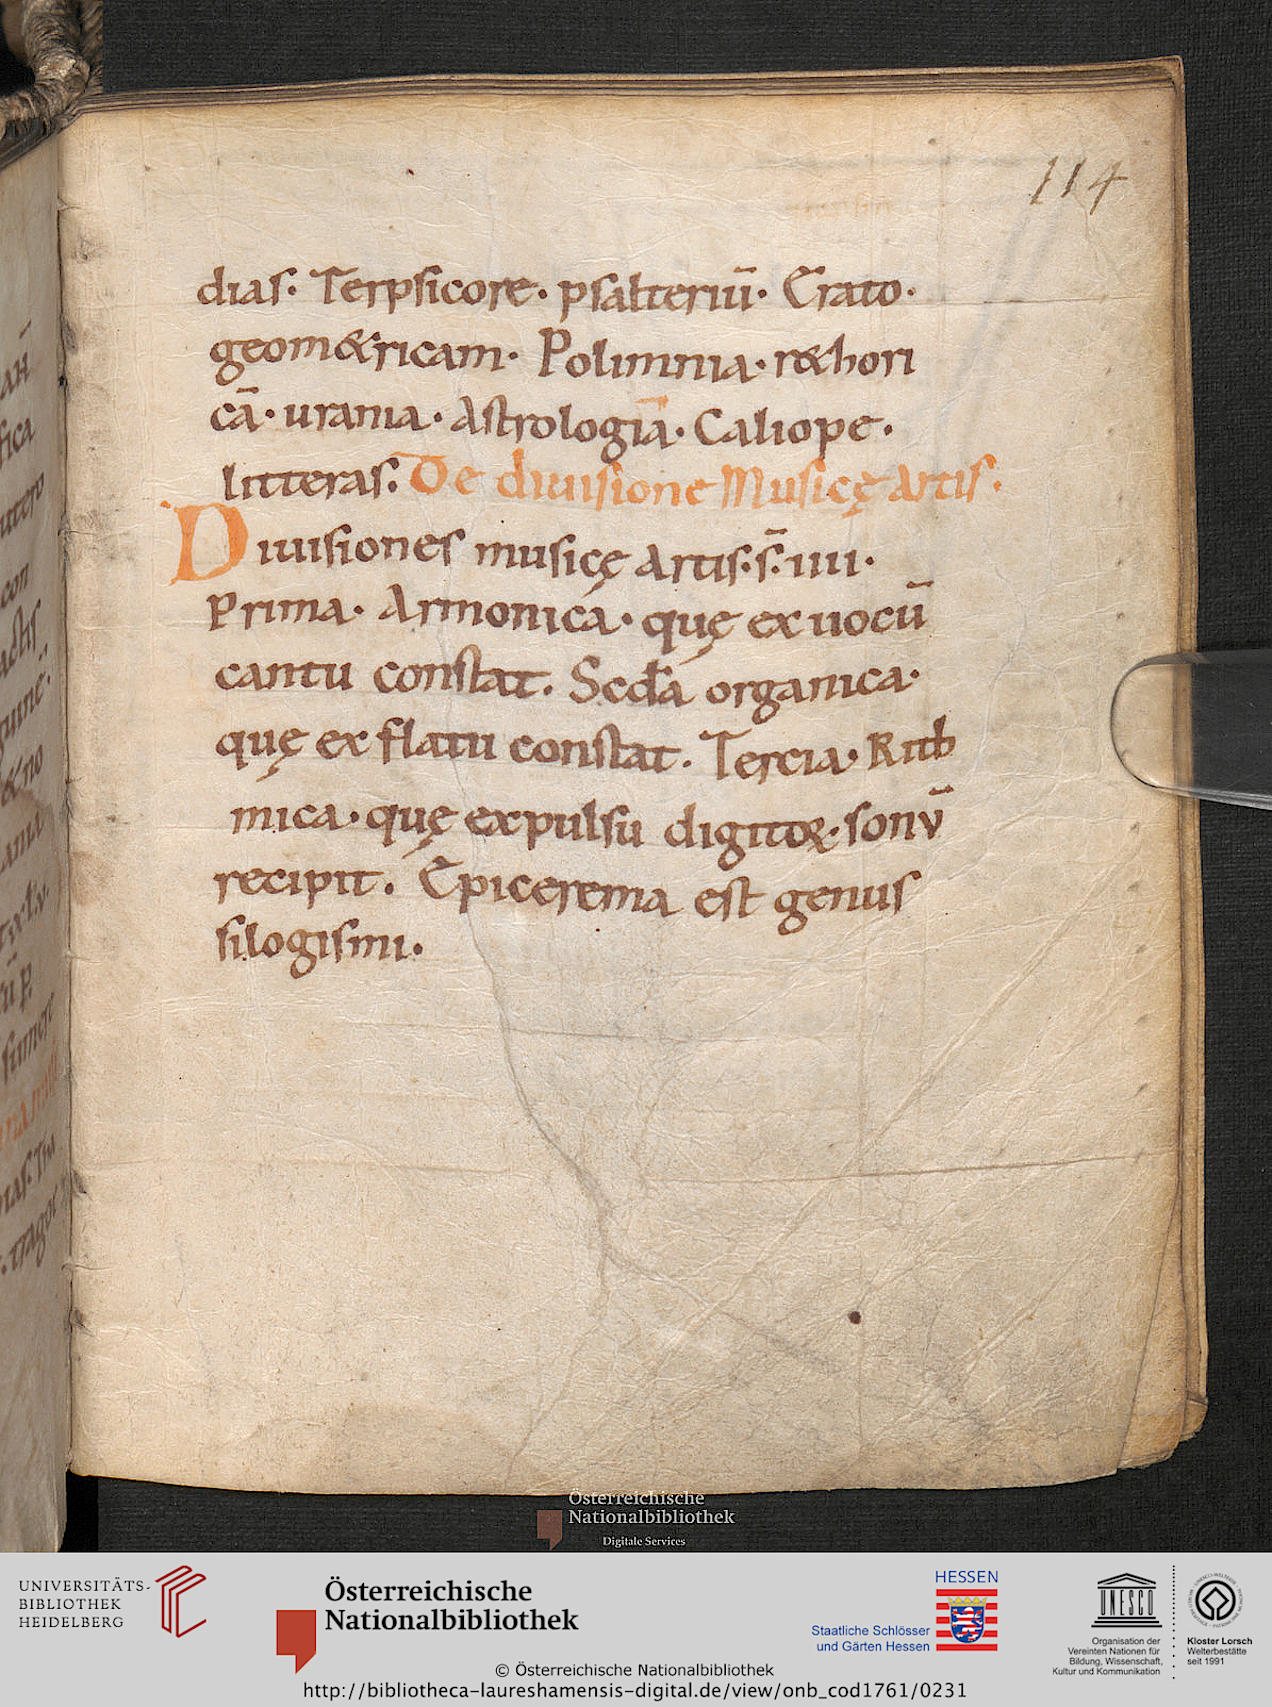 114
dias. Terpsicore. psalteriū. Erato.
geom&ricam. Polimnia. r&hori
cā. urania. Astrologiā. Caliope.
litteras. De diuisione Musicę Artis.
Diuisiones musicę Artis. s̄. iiii.
Prima. Armonica. quę ex uocū
cantu constat. Scđa organica.
quę ex flatu constat. Tercia. Rith
mica. quę expulsu digitoꝝ. sonū
recipit. Epicerema est genus
silogismi.
Österreichische
Nationalbibliothek
Digitale Services
UNIVERSITÄTS-
BIBLIOTHEK
HEIDELBERG
Österreichische
Nationalbibliothek
HESSEN
Staatliche Schlösser
und Gärten Hessen
UNESCO
Organisation der
Vereinten Nationen für
Bildung, Wissenschaft,
Kultur und Kommunikation
Kloster Lorsch
Welterbestätte
seit 1991
© Österreichische Nationalbibliothek
http://bibliotheca-laureshamensis-digital.de/view/onb_cod1761/0231